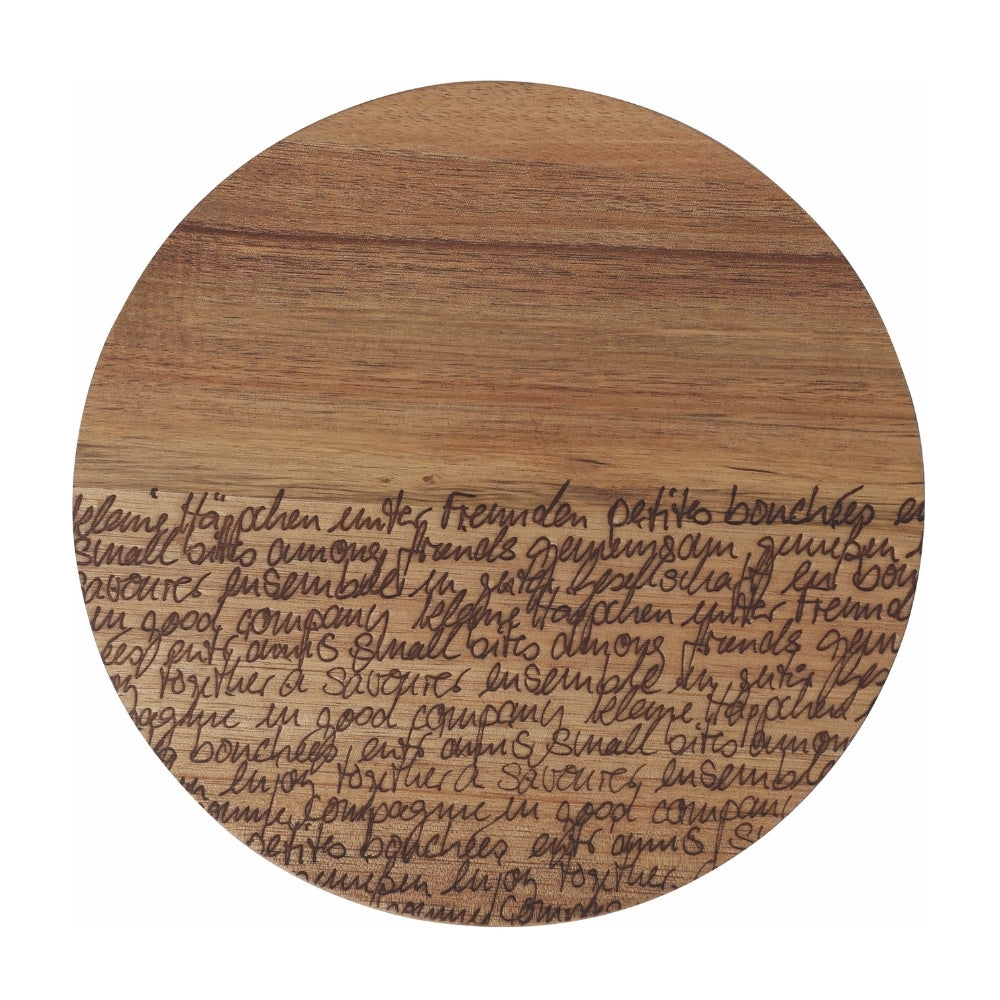 kleine Häppchen unter Freunden petites bouchées en
small bites among friends gemeinsam genießen
savourer ensemble in guter Gesellschaft en bon
in good company kleine Häppchen unter Freund
ées entre amis small bites among friends gem
enjoy together à savourer ensemble in guter Ges
pagnie in good company kleine Häppchen
petites bouchées entre amis small bites among
enjoy together à savourer ensemble
bonne compagnie in good company
petites bouchées entre amis s
genießen enjoy together
bonne compag